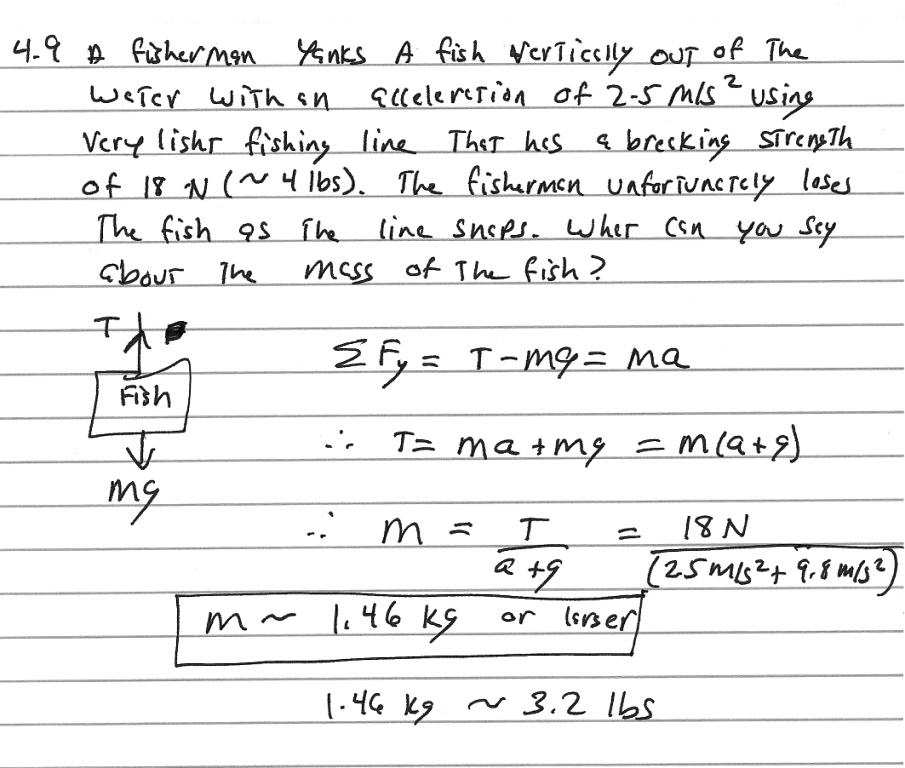 4.9 A fisherman yanks A fish vertically out of The
water with an acceleration of 2.5 m/s² using
very light fishing line That has a breaking strength
of 18 N (~ 4 lbs). The fisherman unfortunately loses
The fish as the line snaps. What can you say
about The mass of The fish?
T
Fish
mg
Σ Fy = T - mg = ma
∴ T = ma + mg = m(a+g)
∴ m = T / (a+g) = 18 N / (2.5 m/s² + 9.8 m/s²)
m ~ 1.46 kg or larger
1.46 kg ~ 3.2 lbs